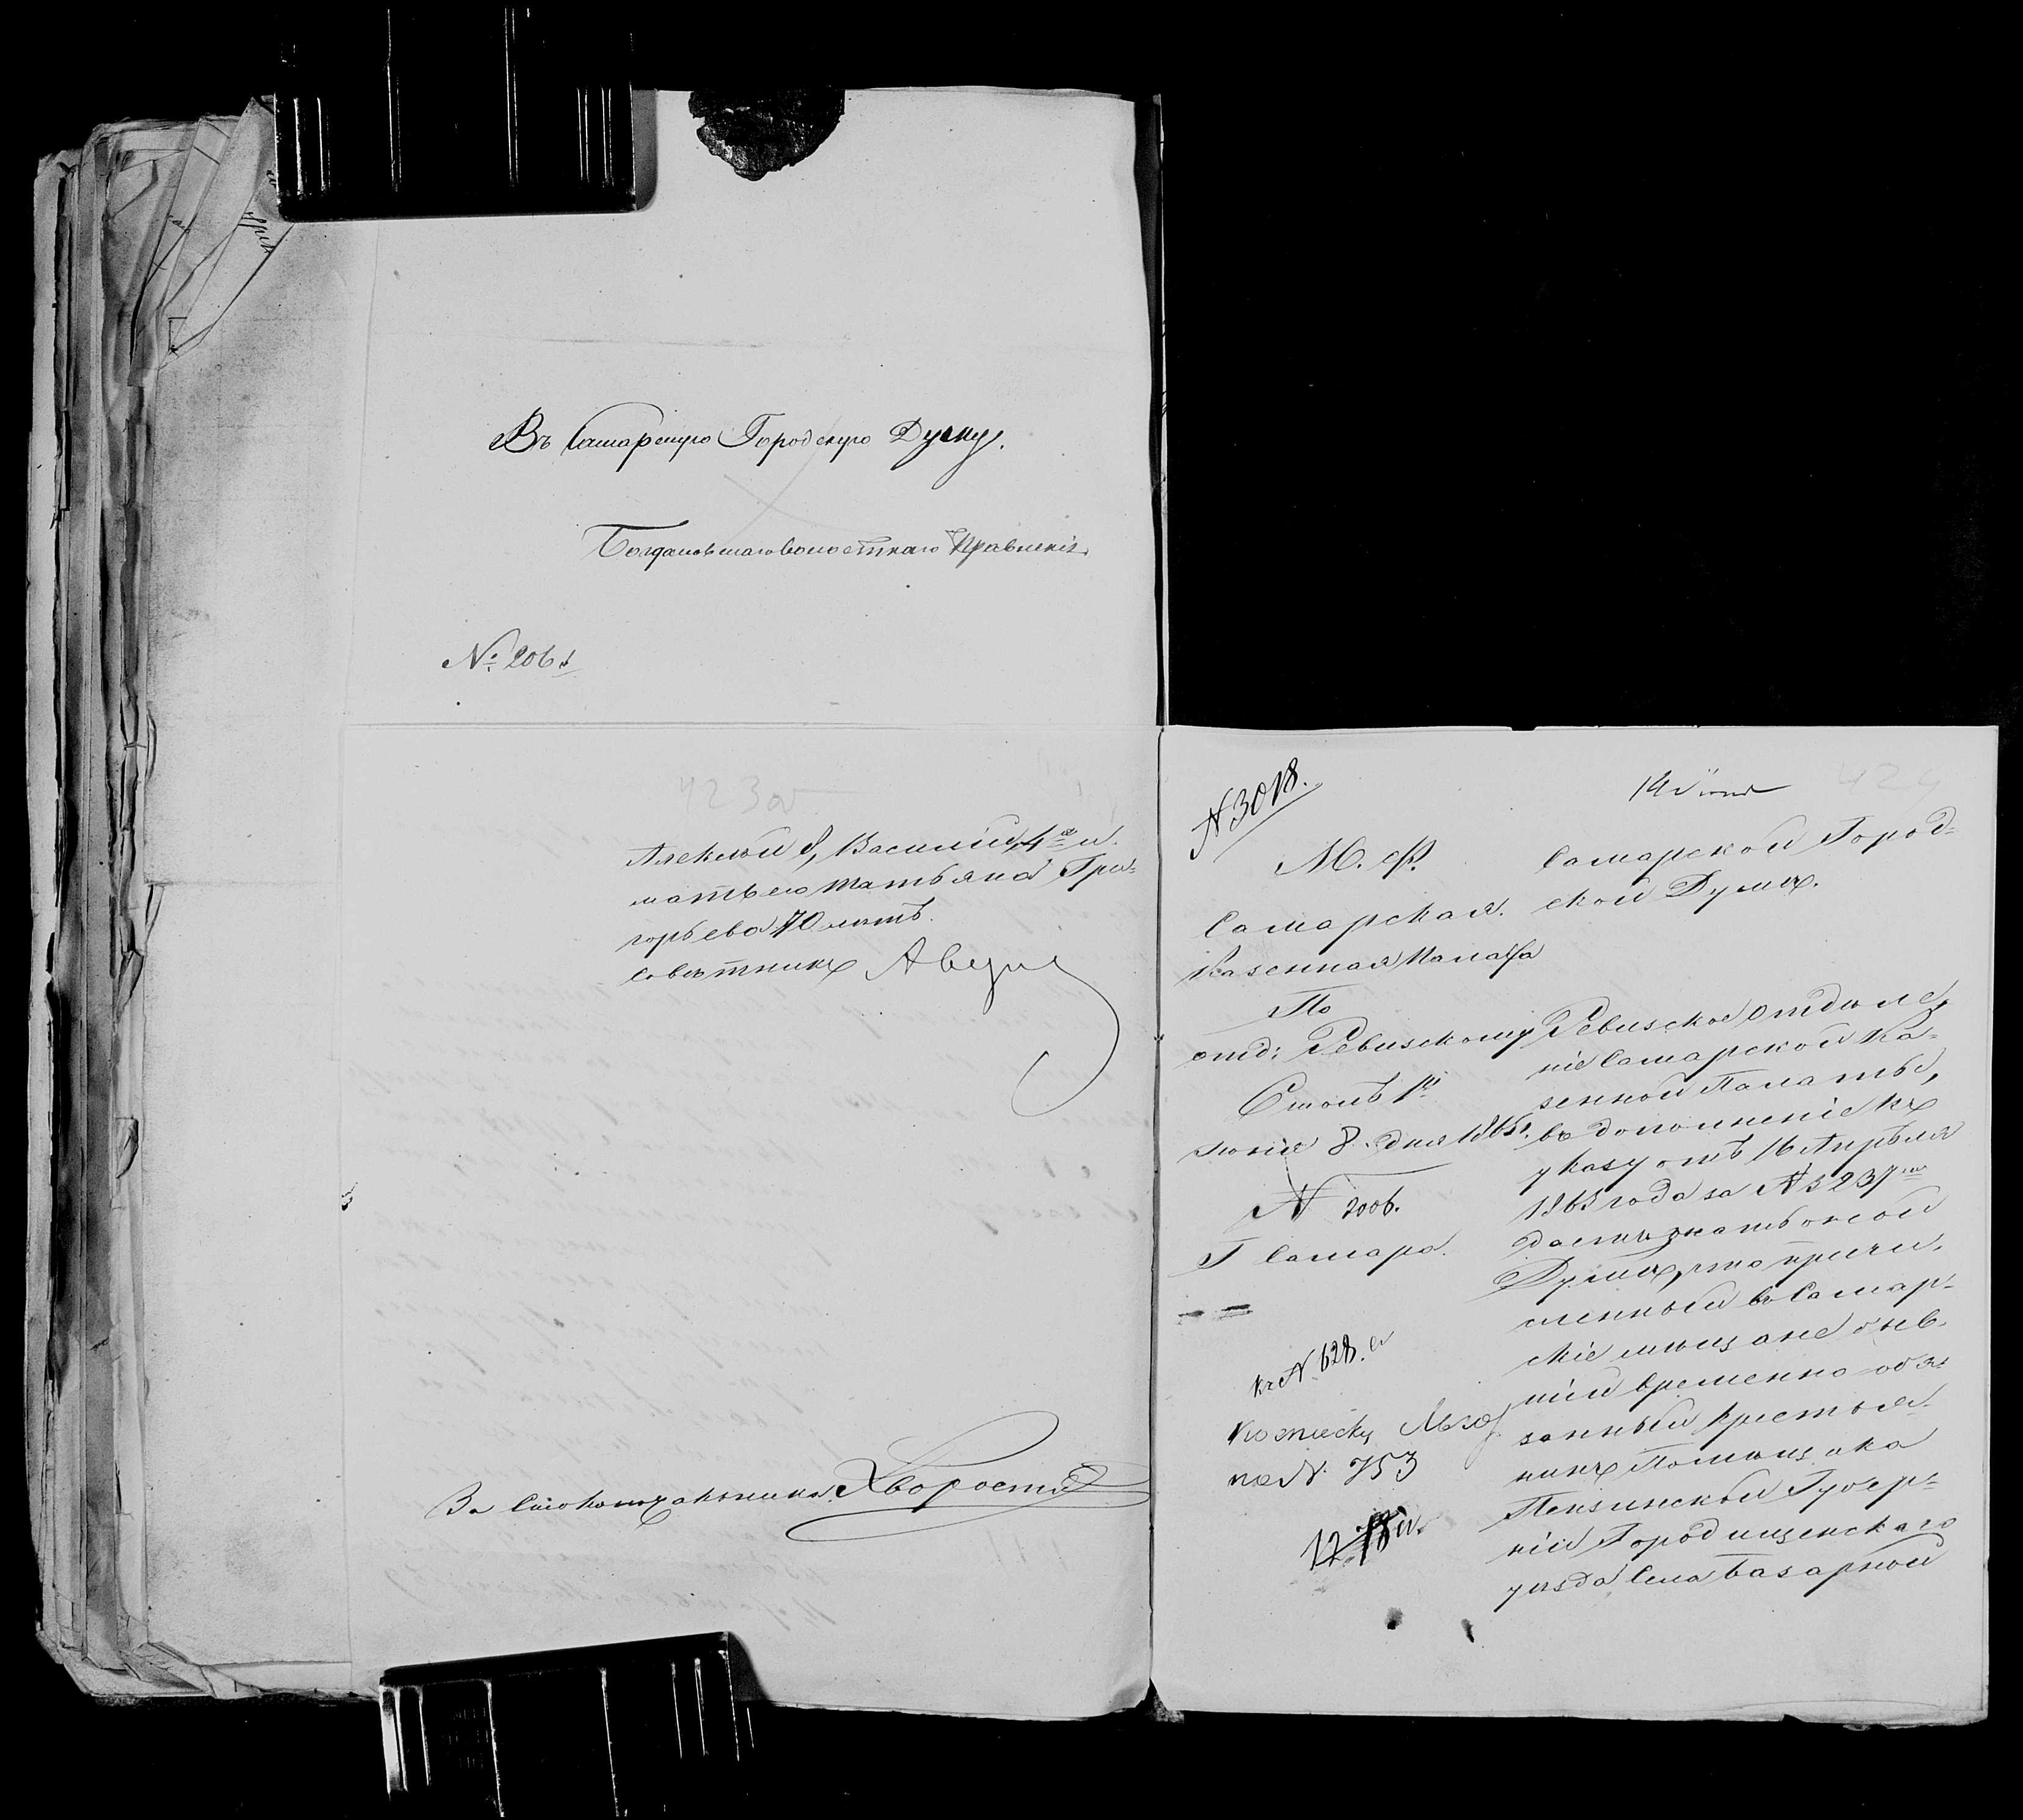 Въ Самарскую Городскую Думу.
Богдановскаго волостнаго Правленія.
№ 2061
423 об
Алексѣй 8, Василій 4х и
мать его Татьяна Гри-
горьева 70 лѣтъ.
Совѣтникъ
За Столоначальника Хворость
№ 3018.
14 Іюня
424
М. Ф.
Самарская
Казенная Палата
По
отд: Ревизскому
Столъ 1й
Іюня 8 дня 1865.
№ 2006.
Г Самара.
къ № 628.
на № 753
12
Самарской Город-
ской Думѣ.
Ревизское отдѣле-
ніе Самарской Ка-
зенной Палаты,
въ дополненіе къ
указу отъ 16 Апрѣля
1865 года за № 3237мъ
даетъ знать оной
Думѣ, что причи-
сленный въ Самар-
скіе мѣщане быв-
шій временно-обя-
занный крестья-
нинъ Помѣщика
Пензинской Губер-
ніи Городищенскаго
уѣзда Села Базарной